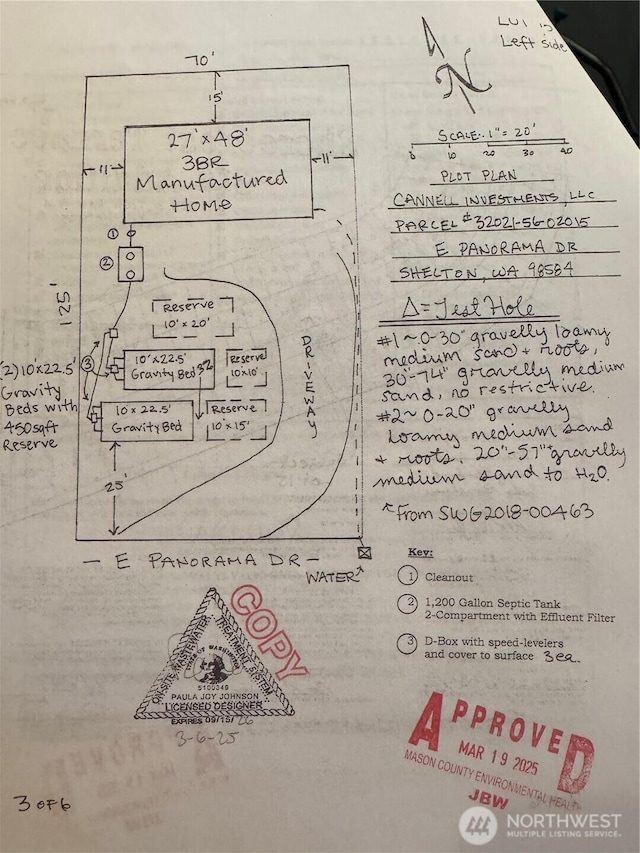 LUI is
Left side
70'
N
15'
SCALE: 1" = 20'
0 10 20 30 40
27' x 48'
3BR
Manufactured
Home
11'
11'
PLOT PLAN
CANNELL INVESTMENTS, LLC
PARCEL # 32021-56-02015
E PANORAMA DR
SHELTON, WA 98584
①
②
125'
Reserve
10' x 20'
Δ = Test Hole
#1 ~ 0-30" gravelly loamy
medium sand + roots,
30"-74" gravelly medium
sand, no restrictive.
#2 ~ 0-20" gravelly
loamy medium sand
+ roots. 20"-57" gravelly
medium sand to H2O.
DRIVEWAY
(2) 10'x22.5'
Gravity
Beds with
450 sqft
Reserve
③
10' x 22.5'
Gravity Bed
32
Reserve
10'x10'
10 x 22.5'
Gravity Bed
Reserve
10' x 15'
25'
From SWG2018-00463
— E PANORAMA DR —
WATER
Key:
① Cleanout
② 1,200 Gallon Septic Tank
2-Compartment with Effluent Filter
③ D-Box with speed-levelers
and cover to surface 3 ea.
COPY
ON-SITE WASTEWATER TREATMENT SYSTEM
STATE OF WASHINGTON
5100349
PAULA JOY JOHNSON
LICENSED DESIGNER
EXPIRES 09/15/26
3-6-25
APPROVED
MAR 19 2025
MASON COUNTY ENVIRONMENTAL HEALTH
JBW
3 OF 6
NORTHWEST
MULTIPLE LISTING SERVICE®